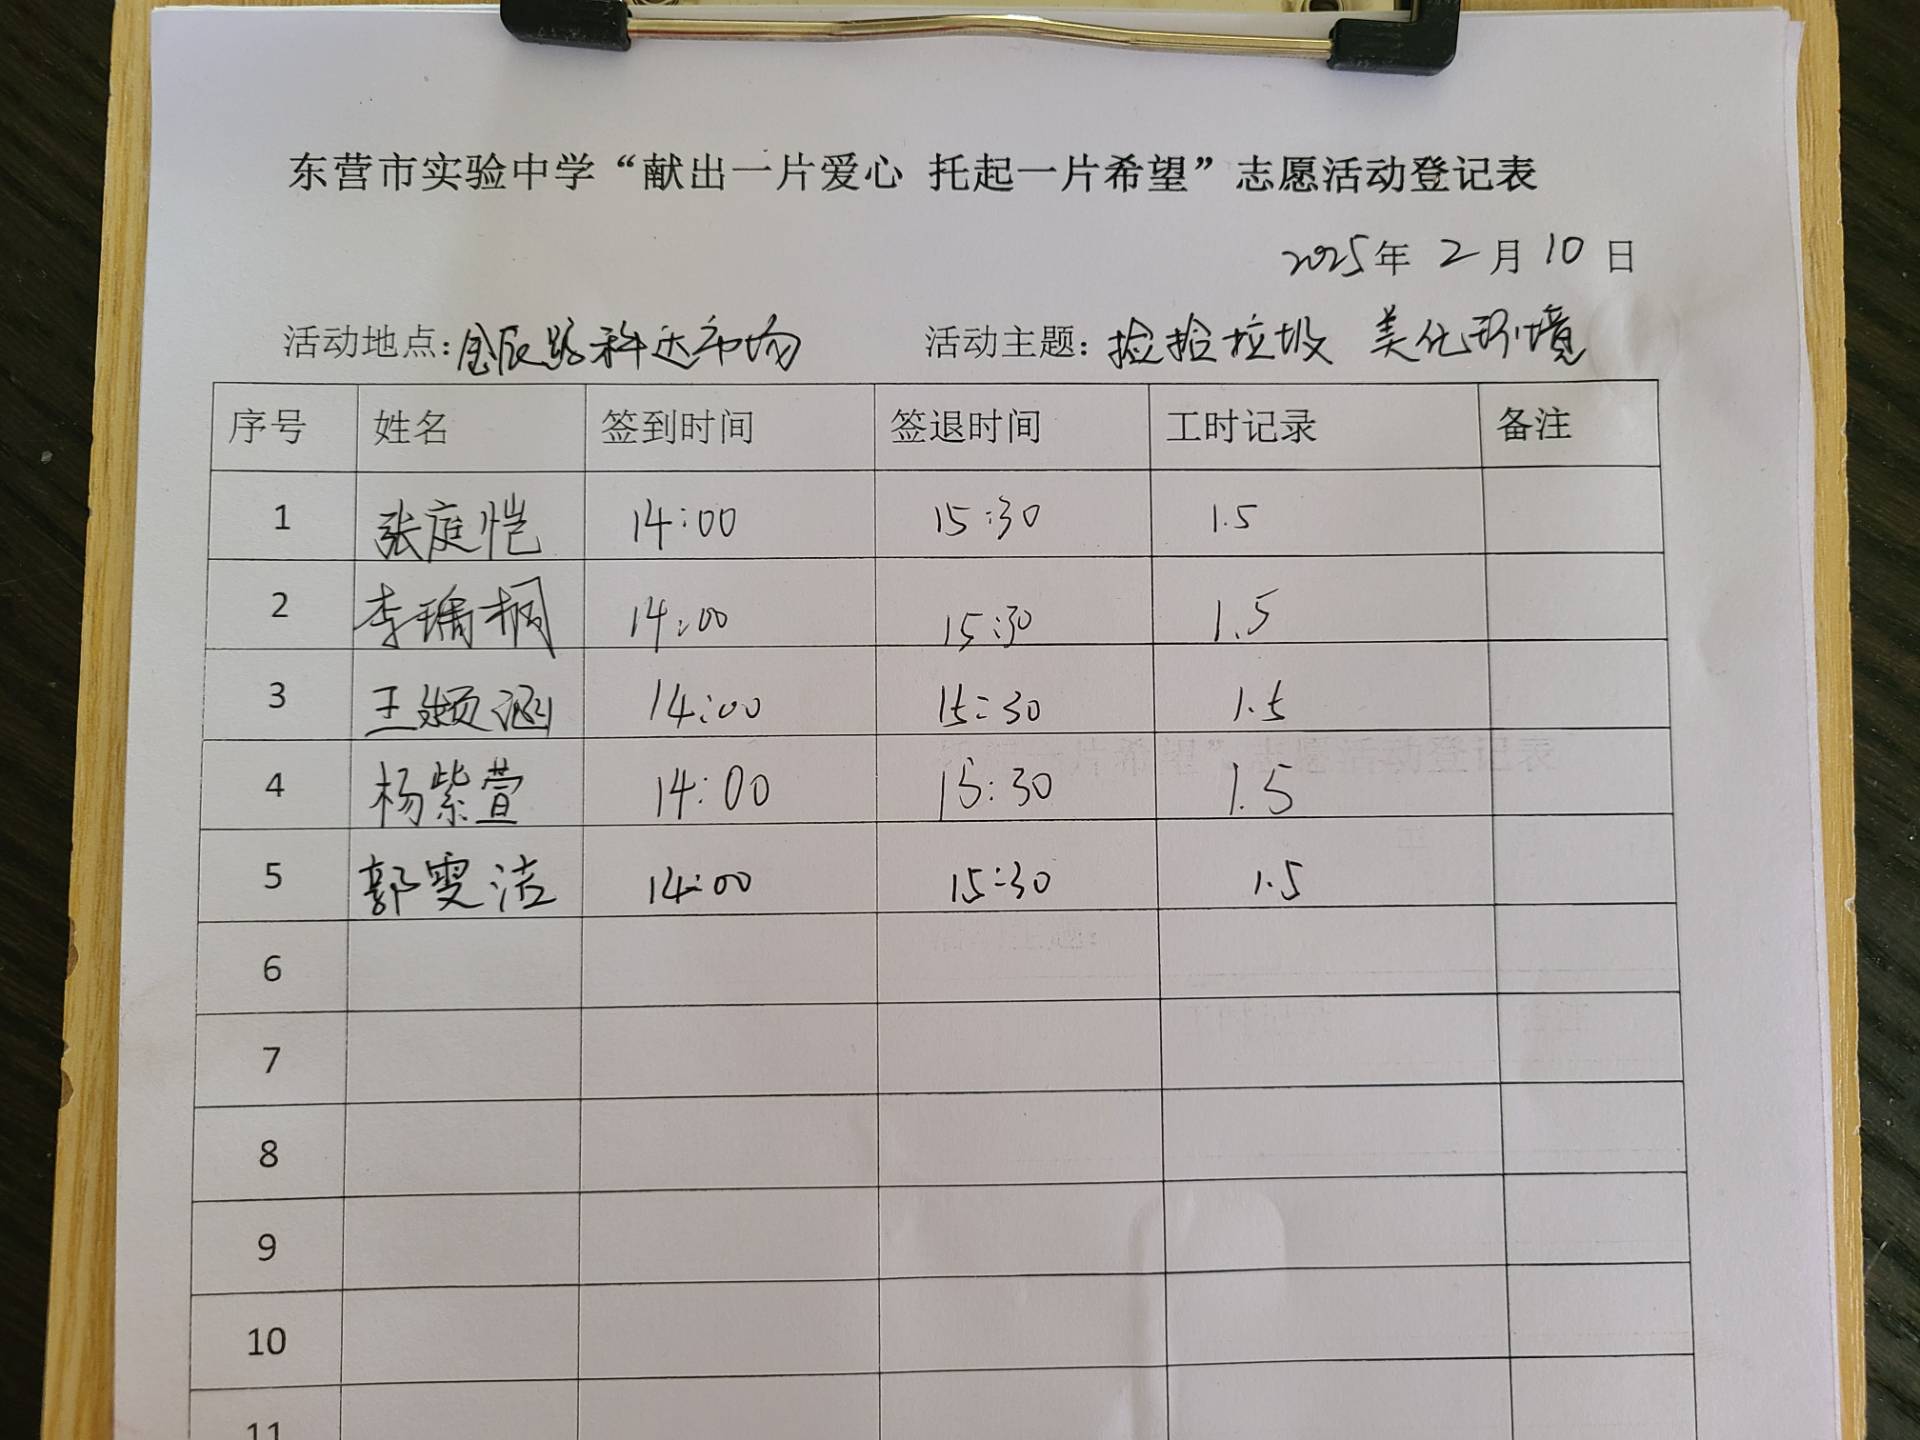 东营市实验中学“献出一片爱心 托起一片希望”志愿活动登记表
2025年 2 月 10 日
活动地点:金辰路科达市场 活动主题:捡拾垃圾 美化环境
序号 姓名 签到时间 签退时间 工时记录 备注
1 张庭恺 14:00 15:30 1.5
2 李瑀桐 14:00 15:30 1.5
3 王颍涵 14:00 15:30 1.5
4 杨紫萱 14:00 15:30 1.5
5 郭雯洁 14:00 15:30 1.5
6
7
8
9
10
11